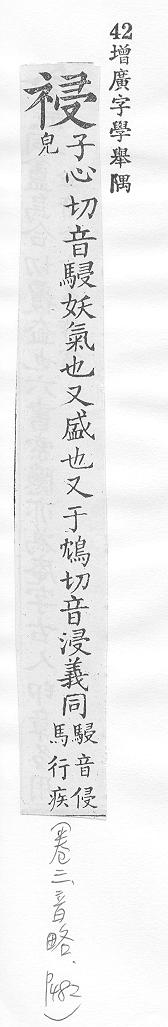 42增廣字學舉隅
祲兒
子心切音駸妖氣也又盛也又于鴆切音浸義同
駸音侵
馬行疾
(卷三、音略.P482)